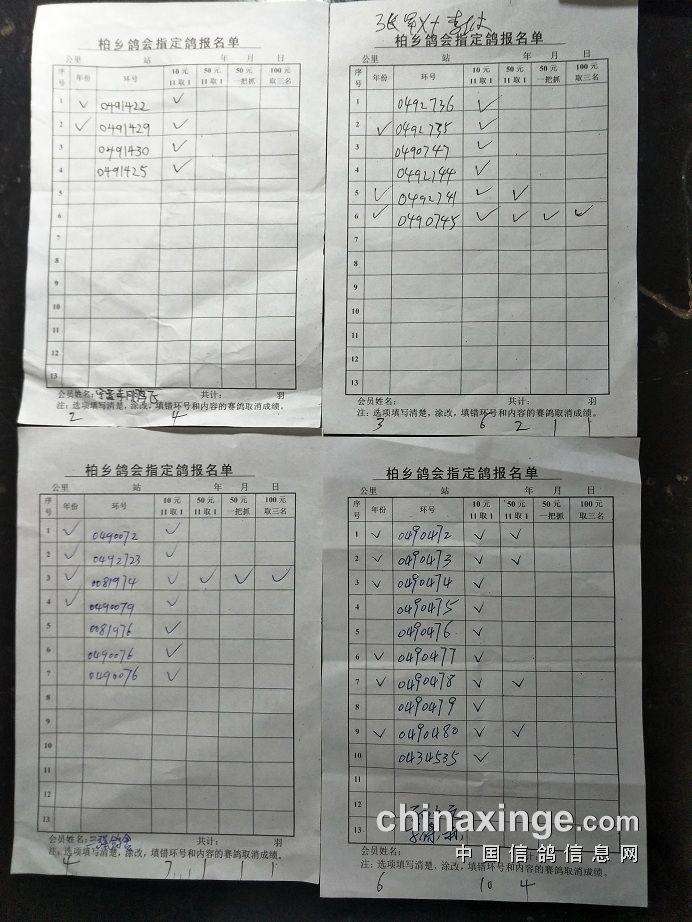 柏乡鸽会指定鸽报名单
公里 站 年 月 日
序号 年份 环号 10元 11取1 50元 11取1 50元 一把抓 100元 取三名
1 ✓ 0491422 ✓
2 ✓ 0491429 ✓
3 0491430 ✓
4 0491425 ✓
5
6
7
8
9
10
11
12
13
会员姓名: 共计: 羽
注:选项填写清楚,涂改,填错环号和内容的赛鸽取消成绩。
2 4
柏乡鸽会指定鸽报名单
公里 站 年 月 日
序号 年份 环号 10元 11取1 50元 11取1 50元 一把抓 100元 取三名
1 0492736 ✓
2 ✓ 0492735 ✓
3 0490747 ✓
4 0492744 ✓
5 ✓ 0492741 ✓ ✓
6 ✓ 0490745 ✓ ✓ ✓ ✓
7
8
9
10
11
12
13
会员姓名: 共计: 羽
注:选项填写清楚,涂改,填错环号和内容的赛鸽取消成绩。
3 6 2 1 1
柏乡鸽会指定鸽报名单
公里 站 年 月 日
序号 年份 环号 10元 11取1 50元 11取1 50元 一把抓 100元 取三名
1 ✓ 0490072 ✓
2 ✓ 0492723 ✓
3 ✓ 0081974 ✓ ✓ ✓ ✓
4 ✓ 0490079 ✓
5 0081976 ✓
6 0490076 ✓
7 0490076 ✓
8
9
10
11
12
13
会员姓名: 共计: 羽
注:选项填写清楚,涂改,填错环号和内容的赛鸽取消成绩。
4 7 1 1 1
柏乡鸽会指定鸽报名单
公里 站 年 月 日
序号 年份 环号 10元 11取1 50元 11取1 50元 一把抓 100元 取三名
1 ✓ 0490472 ✓ ✓
2 ✓ 0490473 ✓ ✓
3 ✓ 0490474 ✓
4 0490475 ✓
5 0490476 ✓
6 ✓ 0490477 ✓
7 ✓ 0490478 ✓ ✓
8 0490479 ✓
9 ✓ 0490480 ✓ ✓
10 0434535 ✓
11
12
13
会员姓名:
注:选项填写清楚,涂改,填错环号和内容的赛鸽取消成绩。
6 10 4
chinaxinge.com
中国信鸽信息网